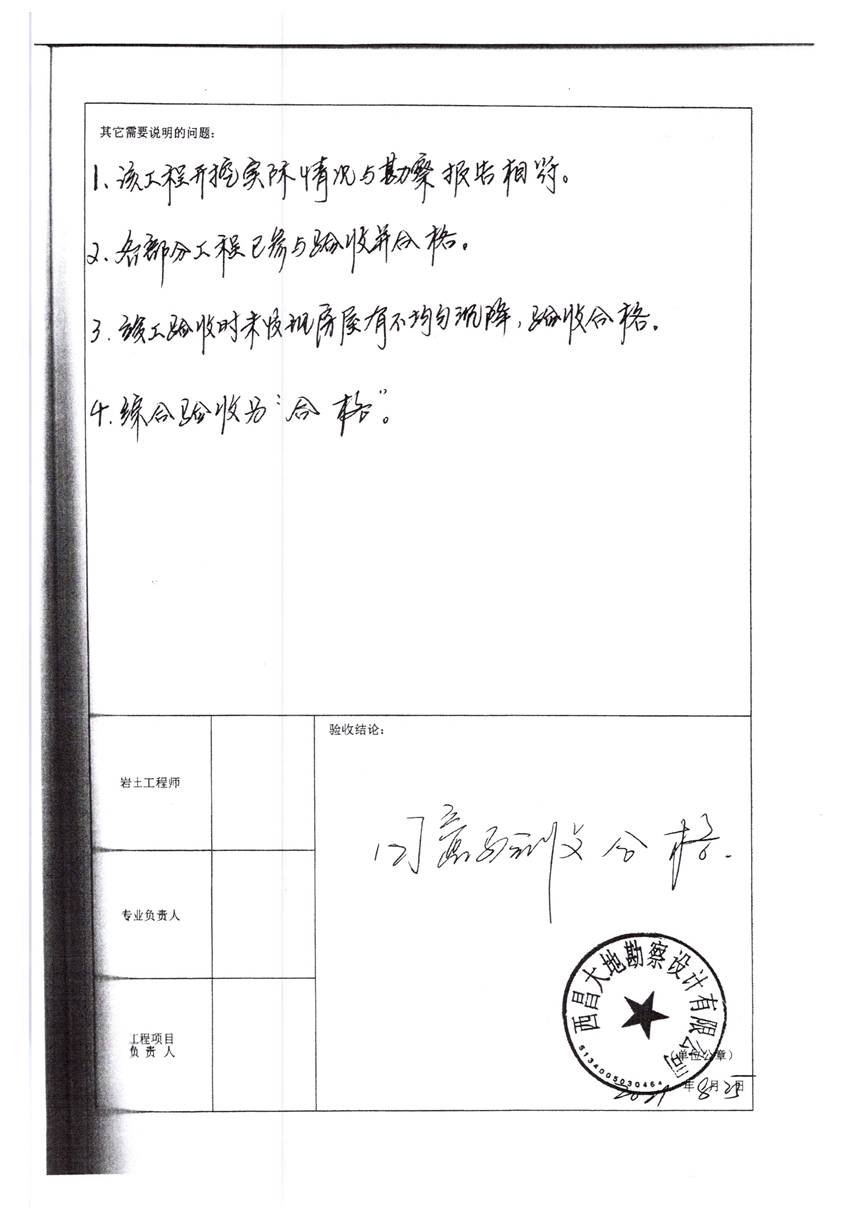 其它需要说明的问题：
1、该工程开挖实际情况与勘察报告相符。
2、各部分工程已参与验收并合格。
3、竣工验收时未发现房屋有不均匀沉降，验收合格。
4、综合验收为“合格”。
岩土工程师
专业负责人
工程项目
负责人
验收结论：
同意验收合格.
西昌大地勘察设计有限公司
5134005030464
（单位公章）
2021年8月25日